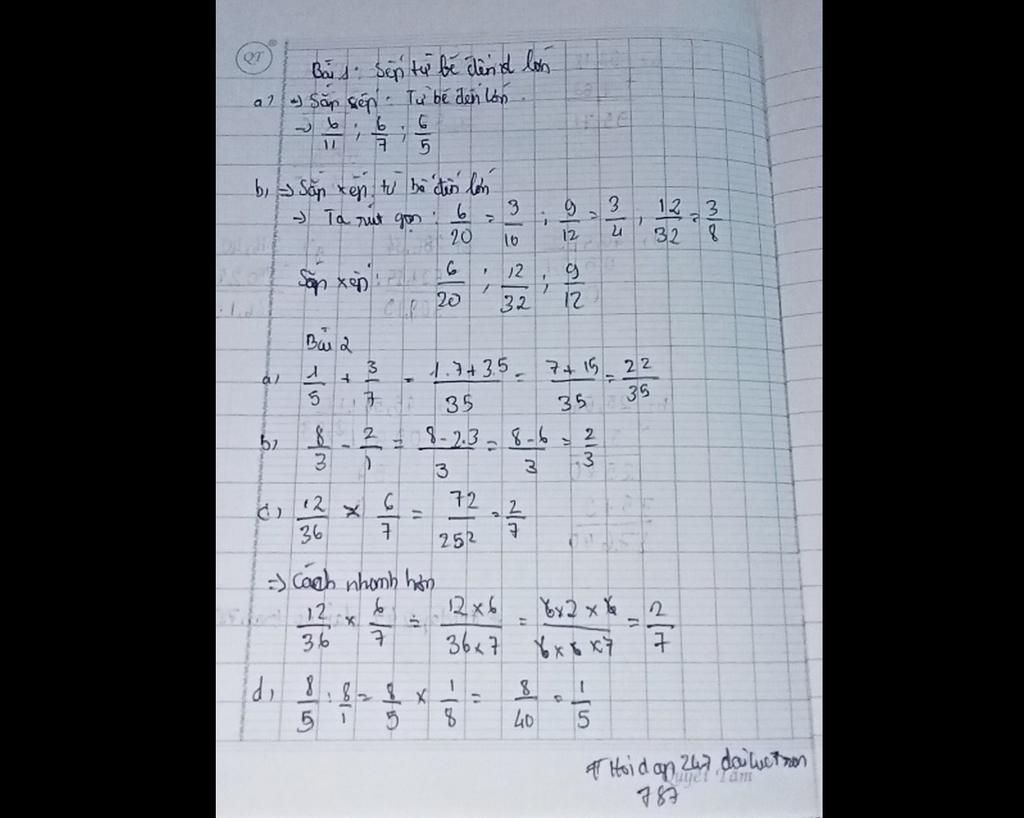 QT
Bài 1: Sếp từ bé đến lớn
a, => Sắp sếp: Từ bé đến lớn.
-> 6/11 ; 6/7 ; 6/5
b, => Sắp xếp từ bé đến lớn
=> Ta rút gọn: 6/20 = 3/10 ; 9/12 = 3/4 , 12/32 = 3/8
Sắp xếp: 6/20 ; 12/32 ; 9/12
Bài 2
a, 1/5 + 3/7 = 1.7+3.5/35 = 7+15/35 = 22/35
b, 8/3 - 2/1 = 8-2.3/3 = 8-6/3 = 2/3
c, 12/36 × 6/7 = 72/252 = 2/7
=> Cách nhanh hơn
12/36 × 6/7 = 12×6/36×7 = 6×2×6/6×6×7 = 2/7
d, 8/5 : 8/1 = 8/5 × 1/8 = 8/40 = 1/5
Hoidap 247
Quyết Tâm
787